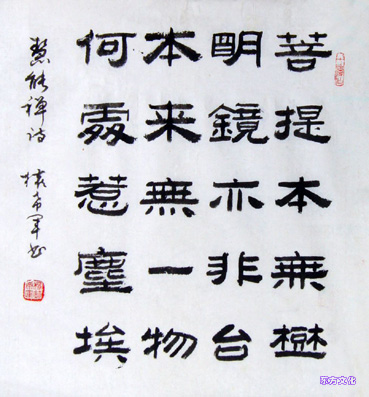 菩提本無樹
明鏡亦非台
本来無一物
何處惹塵埃
慧能禅诗
东方文化